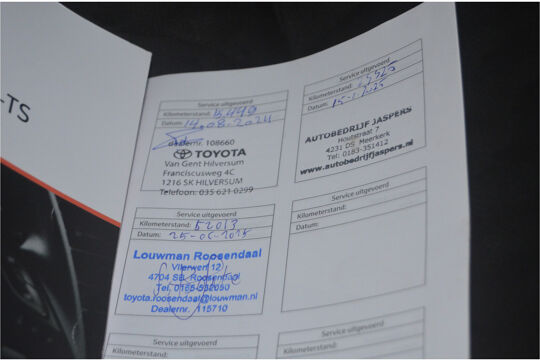 -TS
Service uitgevoerd
Kilometerstand: 15.449
Datum: 14.08.2024
dealernr. 108660
TOYOTA
Van Gent Hilversum
Franciscusweg 4C
1216 SK HILVERSUM
Telefoon: 035 621 0299
Service uitgevoerd
Kilometerstand:
Datum: 15-1-2025
AUTOBEDRIJF JASPERS
Houtstraat 7
4231 DS Meerkerk
Tel: 0183-351412
www.autobedrijfjaspers.nl
Service uitgevoerd
Kilometerstand: 52013
Datum: 25-06-
Louwman Roosendaal
Vlierwerf 12
4704 SB Roosendaal
Tel. 0165-532050
toyota.roosendaal@louwman.nl
Dealernr. 115710
Service uitgevoerd
Kilometerstand:
Datum:
Service uitgevoerd
Kilometerstand:
Service uitgevoerd
Kilometerstand: